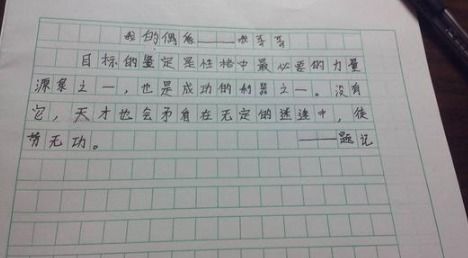 我的偶像——李苹苹
目标的坚定是性格中最必要的力量
源泉之一，也是成功的利器之一。没有
它，天才也会矛盾在无定的迷途中，徒
劳无功。
——题记